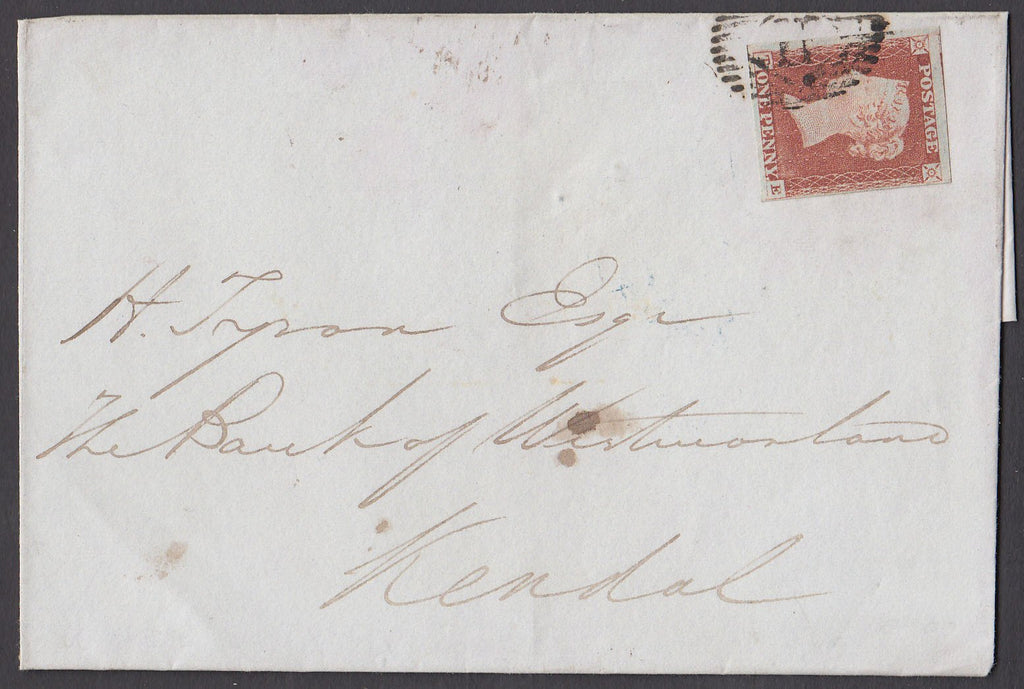 POSTAGE
ONE PENNY
E
H. Tyson Esqr
The Bank of Westmorland
Kendal